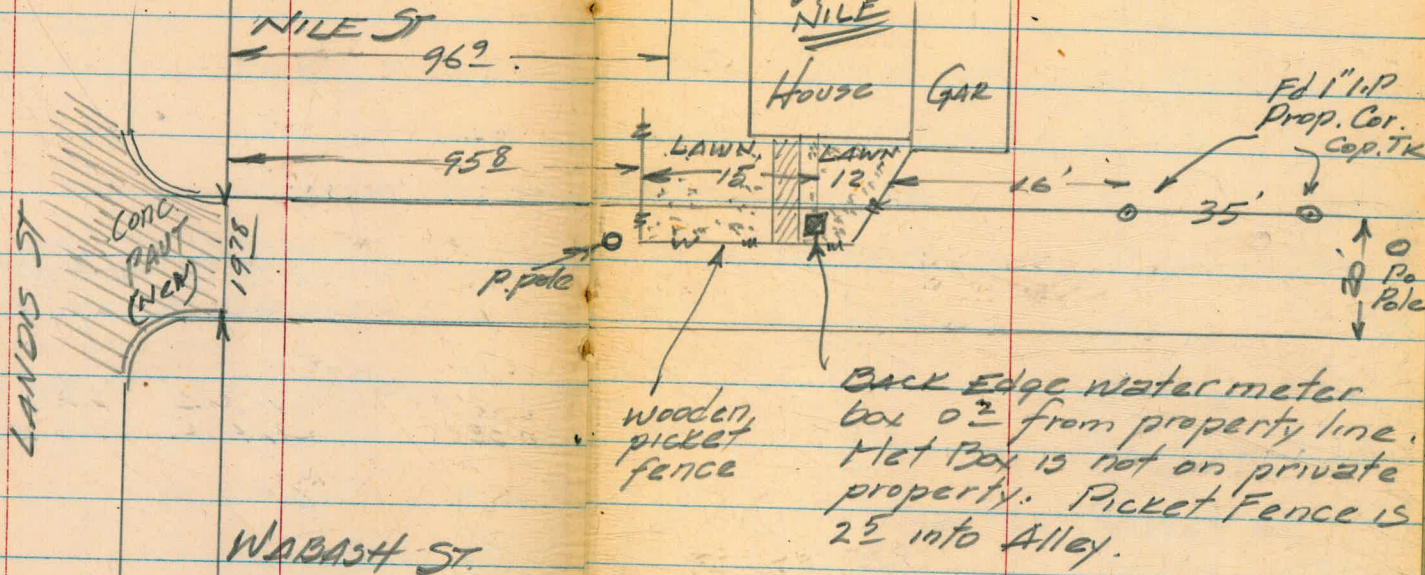 NILE ST
96 9
NILE
House
GAR
Fd 1" I.P
Prop. Cor.
Cop. Tk
95 8
LAWN
LAWN
15
12
16'
35'
LANDIS ST
Conc
PAVT
(New)
19 78
P. pole
W
20
Po
Pole
wooden
picket
fence
BACK Edge water meter
box 0 2 from property line.
Met Box is not on private
property. Picket Fence is
2 5 into Alley.
WABASH ST.